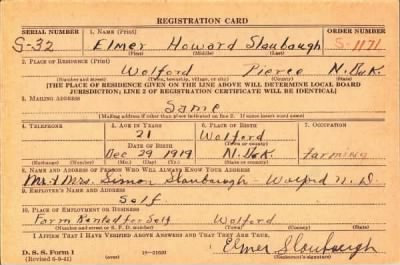 REGISTRATION CARD
SERIAL NUMBER 1. NAME (Print) ORDER NUMBER
S-32 Elmer Howard Slaubaugh S-1171
(First) (Middle) (Last)
2. PLACE OF RESIDENCE (Print)
Wolford Pierce N. Dak.
(Number and street) (Town, township, village, or city) (County) (State)
[THE PLACE OF RESIDENCE GIVEN ON THE LINE ABOVE WILL DETERMINE LOCAL BOARD
JURISDICTION; LINE 2 OF REGISTRATION CERTIFICATE WILL BE IDENTICAL]
3. MAILING ADDRESS
Same
[Mailing address if other than place indicated on line 2. If same insert word same]
4. TELEPHONE 5. AGE IN YEARS 6. PLACE OF BIRTH 7. OCCUPATION
21 Wolford
DATE OF BIRTH (Town or county)
Dec 29 1919 N. Dak. Farming
(Exchange) (Number) (Mo.) (Day) (Yr.) (State or country)
8. NAME AND ADDRESS OF PERSON WHO WILL ALWAYS KNOW YOUR ADDRESS
Mr. & Mrs. Simon Slaubaugh Wolford N. D.
9. EMPLOYER'S NAME AND ADDRESS
Self
10. PLACE OF EMPLOYMENT OR BUSINESS
Farm Rented for Self Wolford
(Number and street or R. F. D. number) (Town) (County) (State)
I AFFIRM THAT I HAVE VERIFIED ABOVE ANSWERS AND THAT THEY ARE TRUE.
D. S. S. Form 1 Elmer Slaubaugh
(Revised 6-9-41) (Registrant's signature)